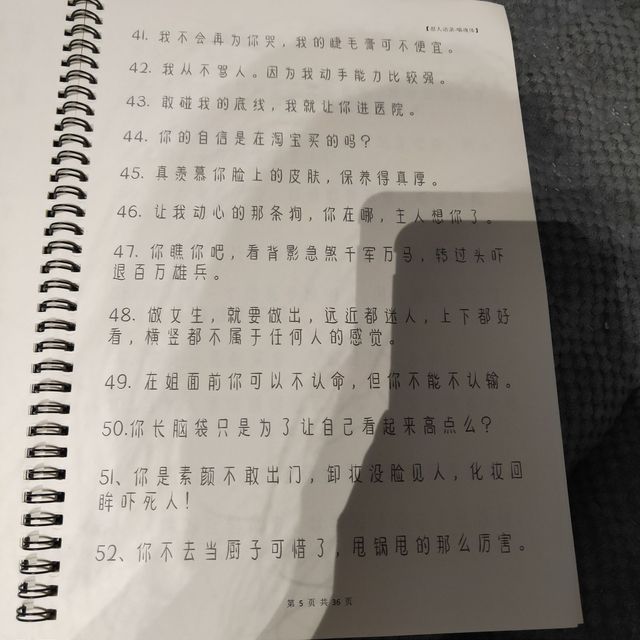 【怼人语录-喵逸体】
41. 我不会再为你哭，我的睫毛膏可不便宜。
42. 我从不骂人。因为我动手能力比较强。
43. 敢碰我的底线，我就让你进医院。
44. 你的自信是在淘宝买的吗？
45. 真羡慕你脸上的皮肤，保养得真厚。
46. 让我动心的那条狗，你在哪，主人想你了。
47. 你瞧你吧，看背影急煞千军万马，转过头吓
退百万雄兵。
48. 做女生，就要做出，远近都迷人，上下都好
看，横竖都不属于任何人的感觉。
49. 在姐面前你可以不认命，但你不能不认输。
50.你长脑袋只是为了让自己看起来高点么？
51、你是素颜不敢出门，卸妆没脸见人，化妆回
眸吓死人！
52、你不去当厨子可惜了，甩锅甩的那么厉害。
第 5 页 共 36 页